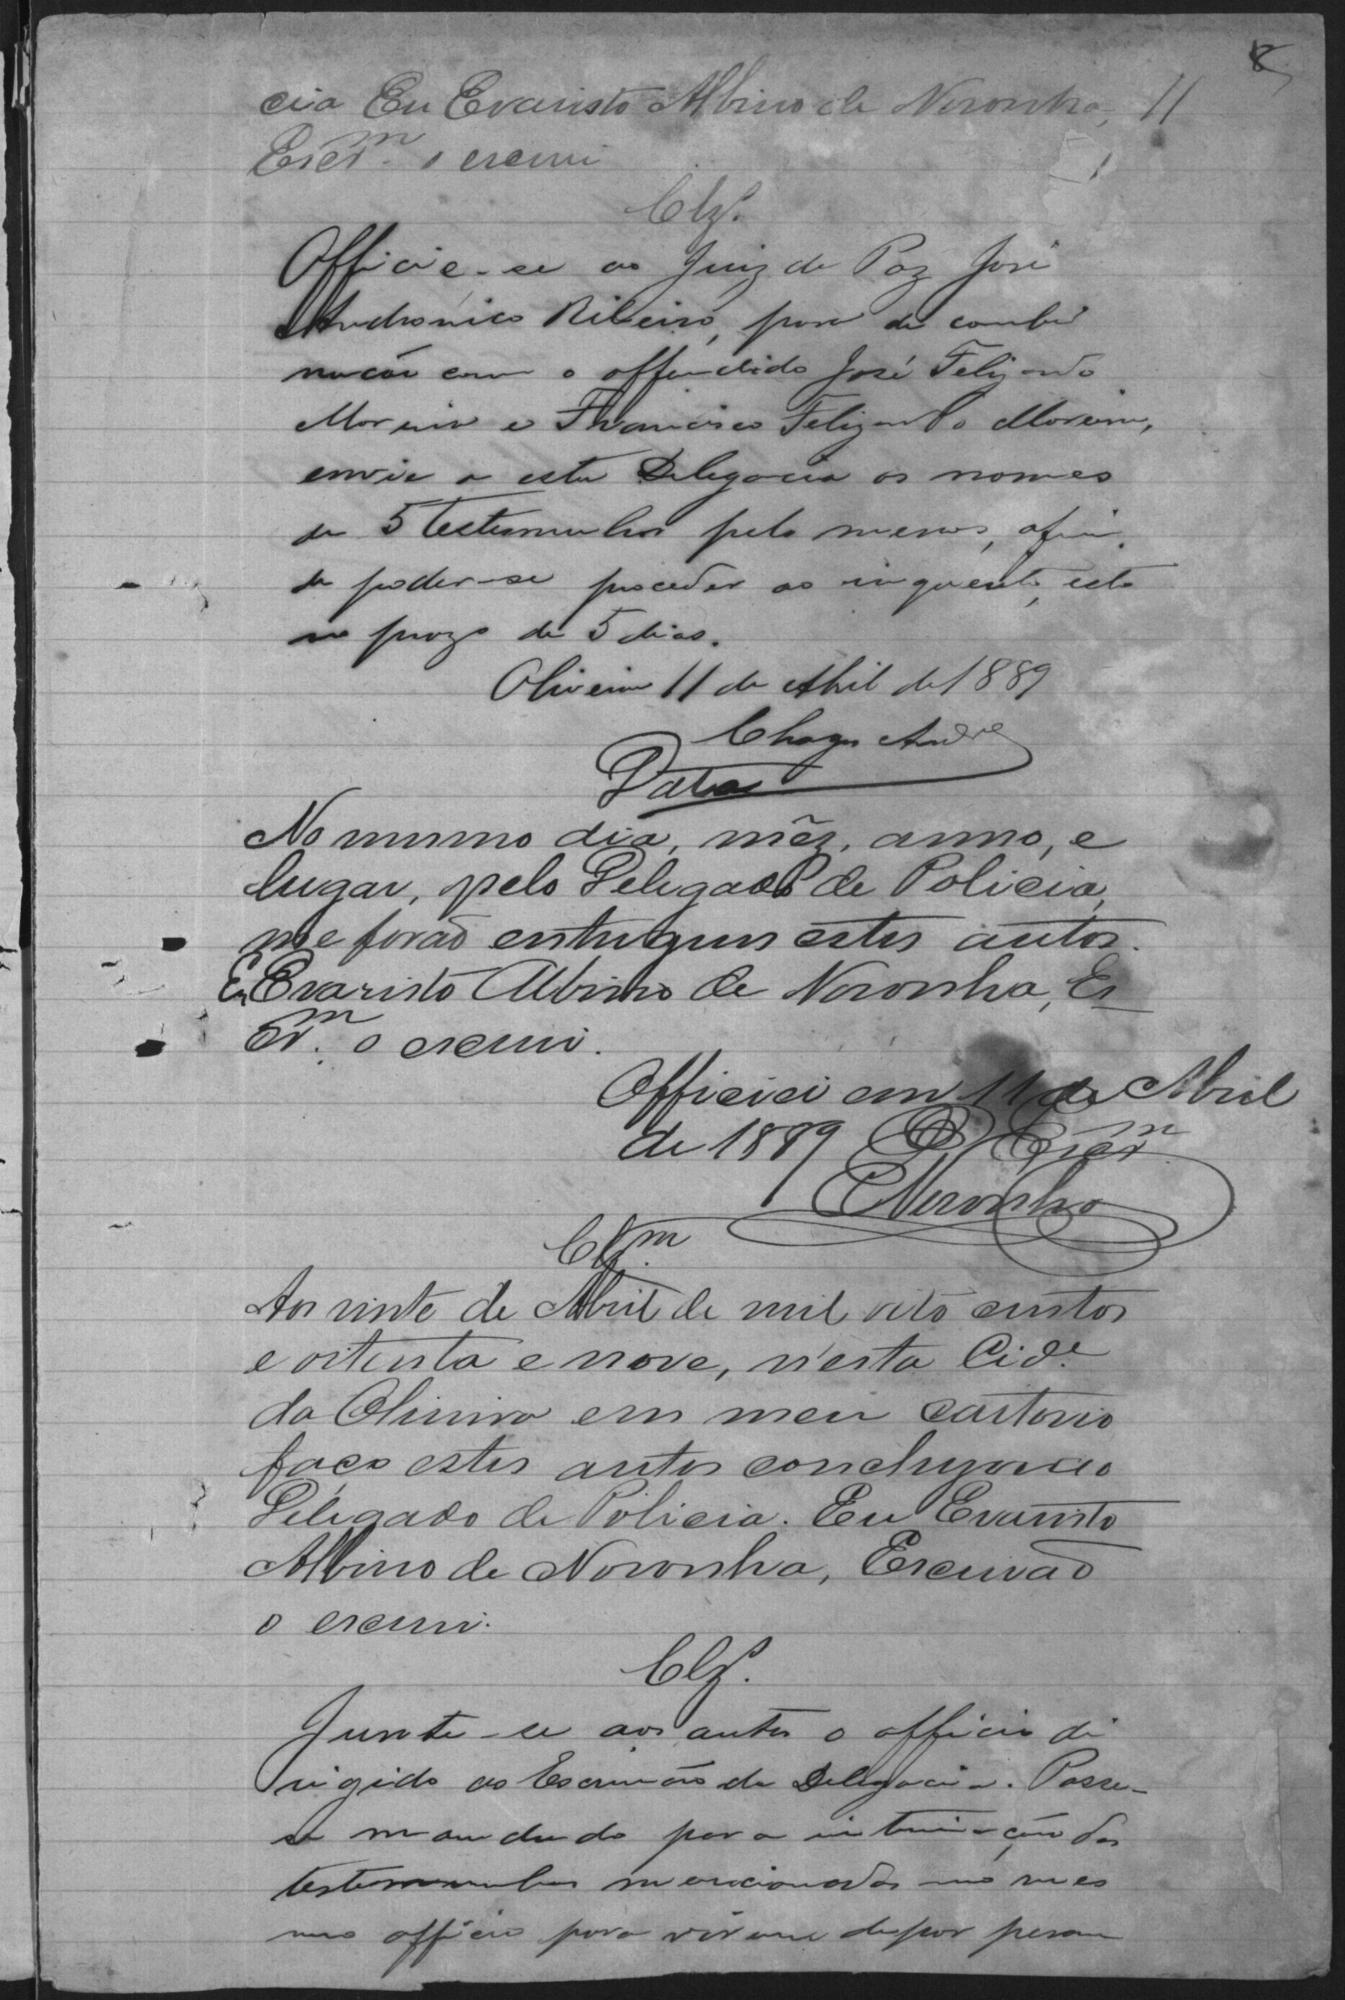 8
cia Eu Evaristo Albino de Noronha, 11
Escrm. o escrevi
Clz.
Officie-se ao Juiz de Paz José
Andronico Ribeiro, para de combi
nacão com o offendido José Felizardo
Moreira e Francisco Felizardo Moreira,
envie a esta Delegacia os nomes
de 5 testemunhas pelo menos, afim
de poder-se proceder ao inquerito, isto
no prazo de 5 dias.
Oliveira 11 de Abril de 1889
Chagas Andre
Data
No mesmo dia, mêz, anno, e
lugar, pelo Delegado de Policia,
me forão entregues estes autos.
Eu Evaristo Albino de Noronha, Es
crm. o escrevi.
Officiei em 11 de Abril
de 1889 O Escrm
Noronha
Clzm
Aos vinte de Abril de mil oito centos
e oitenta e nove, n'esta Cide.
da Oliveira em meu cartorio
faço estes autos conclusos ao
Delegado de Policia. Eu Evaristo
Albino de Noronha, Escrivão
o escrevi.
Clz.
Junte-se aos autos o officio di
rigido ao Escrivão da Delegacia. Passe-
se mandado para intimação das
testemunhas mencionadas no mes
mo officio para virem depor peran